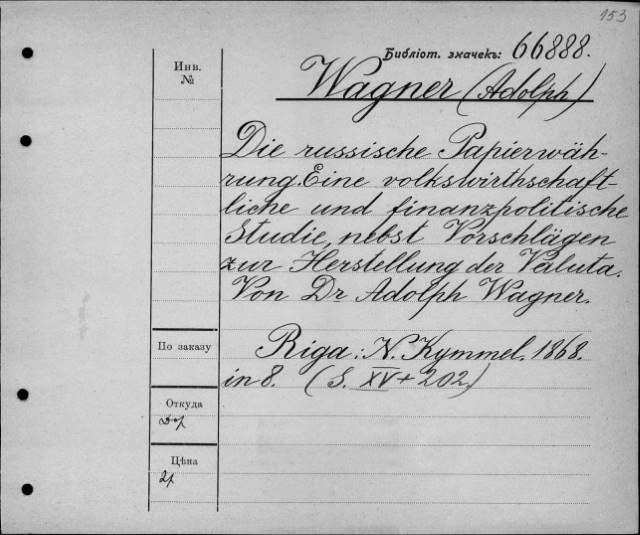 153
Библіот. значекъ: 66888.
Инв.
№
Wagner (Adolph)
Die russische Papierwäh-
rung. Eine volkswirthschaft-
liche und finanzpolitische
Studie, nebst Vorschlägen
zur Herstellung der Valuta.
Von Dr Adolph Wagner.
По заказу
Riga: N. Kymmel. 1868.
in 8. (S. XV + 202)
Откуда
Цѣна
2р